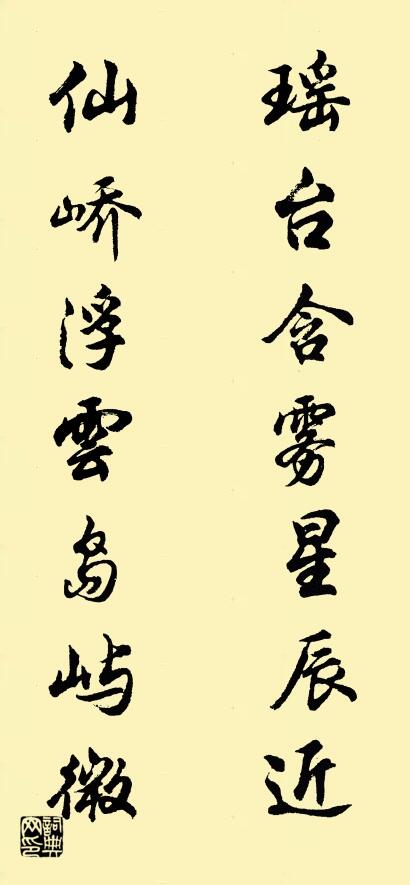 瑶台含雾星辰近
仙峤浮雲岛屿微
詞典网印